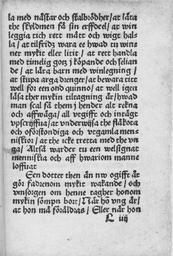 la med nästar och skalbrödher/at lära
the skyldmen så sin erfford/at win
leggia sich rett mått och wigt hals
la/at tilfridz wara ee hwad tu wins
ner mykit eller litit/at rett handla
med timelig gotz i köpande och selian
de/at lära barn med winlegning/
at stupa arga drenger/at bewara titt
well for een ond quinno/at well igen
låsa ther mykin tilragning är/hwad
man skal så them i hender alt rekna
och affwäga/all vrgifft och intägt
vpscriffuia/at vnderwijsa the fåkota
och oförstondiga och vrgamla mens
niskior/at the icke tretta med the vn
ga/Altså warder tu een welsignat
menniskia och aff hwariom manne
loffuat
Een dotter then än nw ogifft är
gör fadrenom mykit wakande/och
vmsorgen om henne tagher honom
mykin sömpn bort/När hö vng är/
at hon må föråldras/Eller när hon
L iiij